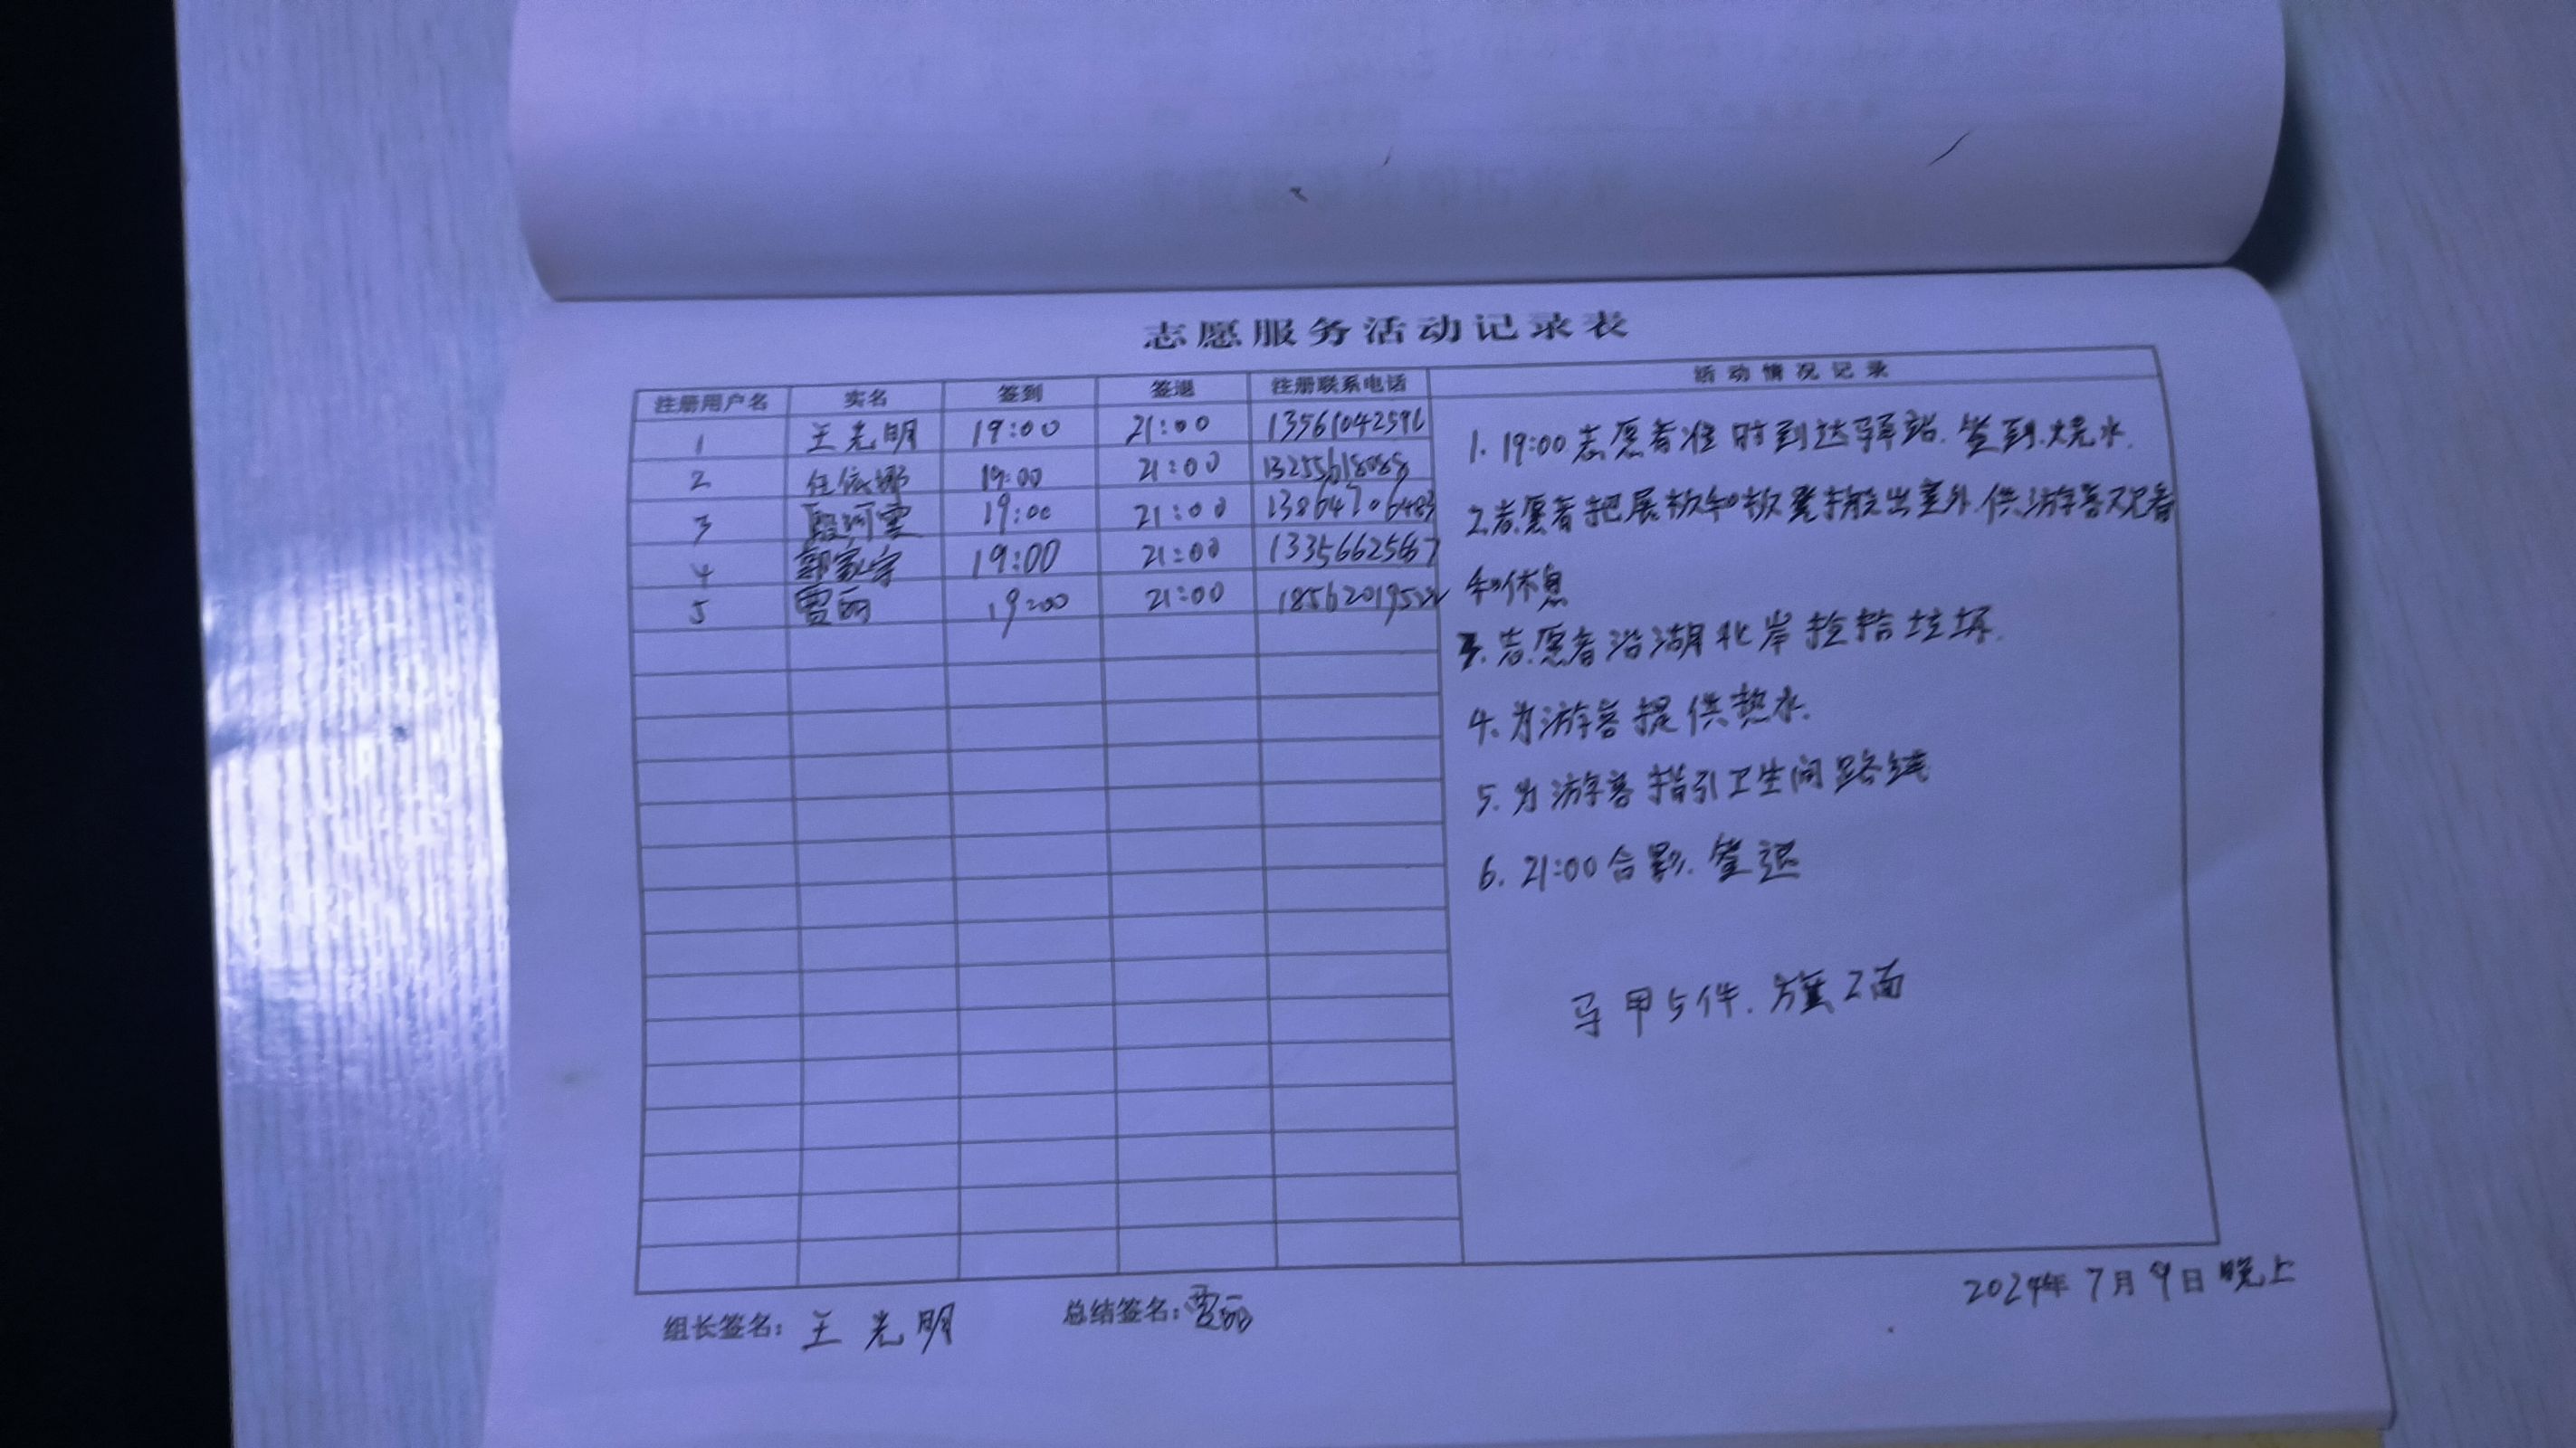 志愿服务活动记录表
注册用户名 实名 签到 签退 注册联系电话 活动情况记录
1 王光明 19:00 21:00 13561042596
2 任依娜 19:00 21:00 13255618088
3 段 雯 19:00 21:00 13864706483
4 郭家宇 19:00 21:00
5 贾丽 19:00 21:00
1. 19:00志愿者准时到达驿站.签到.烧水.
2.志愿者把展板和板凳搬出室外.供游客观看
和休息
3.志愿者沿湖北岸捡拾垃圾.
4.为游客提供热水.
5.为游客指引卫生间路线
6. 21:00合影.签退
马甲5件.旗2面
组长签名: 王光明 总结签名: 贾丽
2024年7月9日晚上